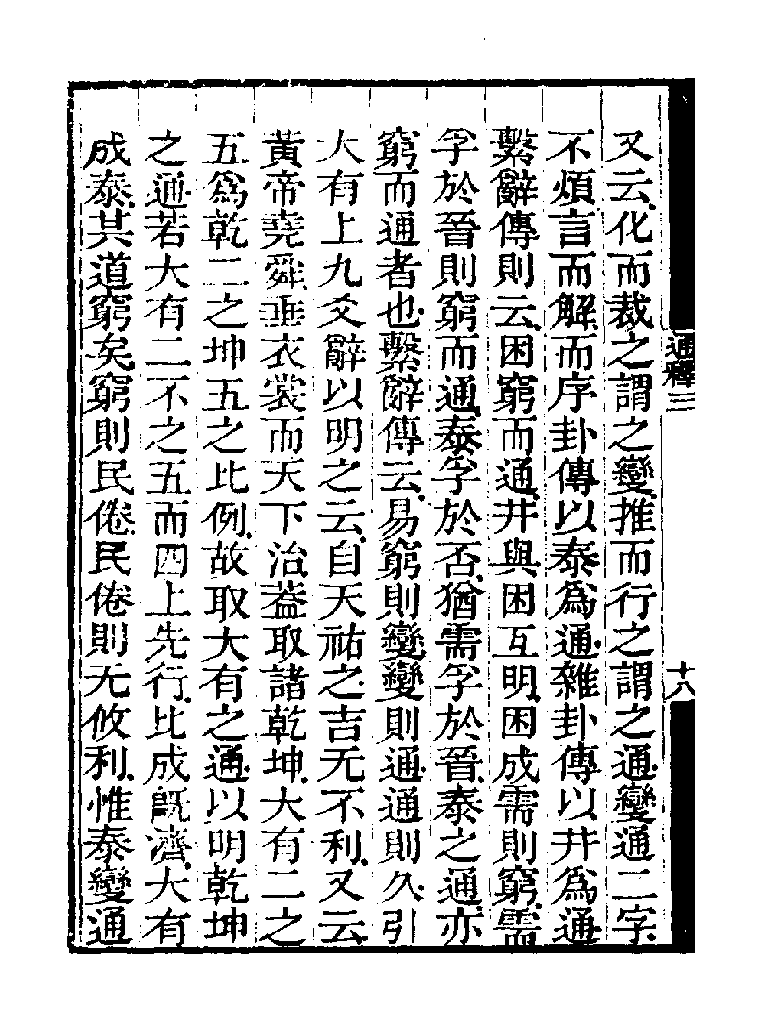 又云化而裁之謂之變推而行之謂之通變通二字
不煩言而解而序卦傳以泰爲通雜卦傳以井爲通
繫辭傳則云困窮而通井與困互明困成需則窮需
孚於晉則窮而通泰孚於否猶需孚於晉泰之通亦
窮而通者也繫辭傳云易窮則變變則通通則久引
大有上九爻辭以明之云自天祐之吉无不利又云
黃帝堯舜垂衣裳而天下治葢取諸乾坤大有二之
五爲乾二之坤五之比例故取大有之通以明乾坤
之通若大有二不之五而四上先行比成既濟大有
成泰其道窮矣窮則民倦民倦則无攸利惟泰變通
通釋三
十八